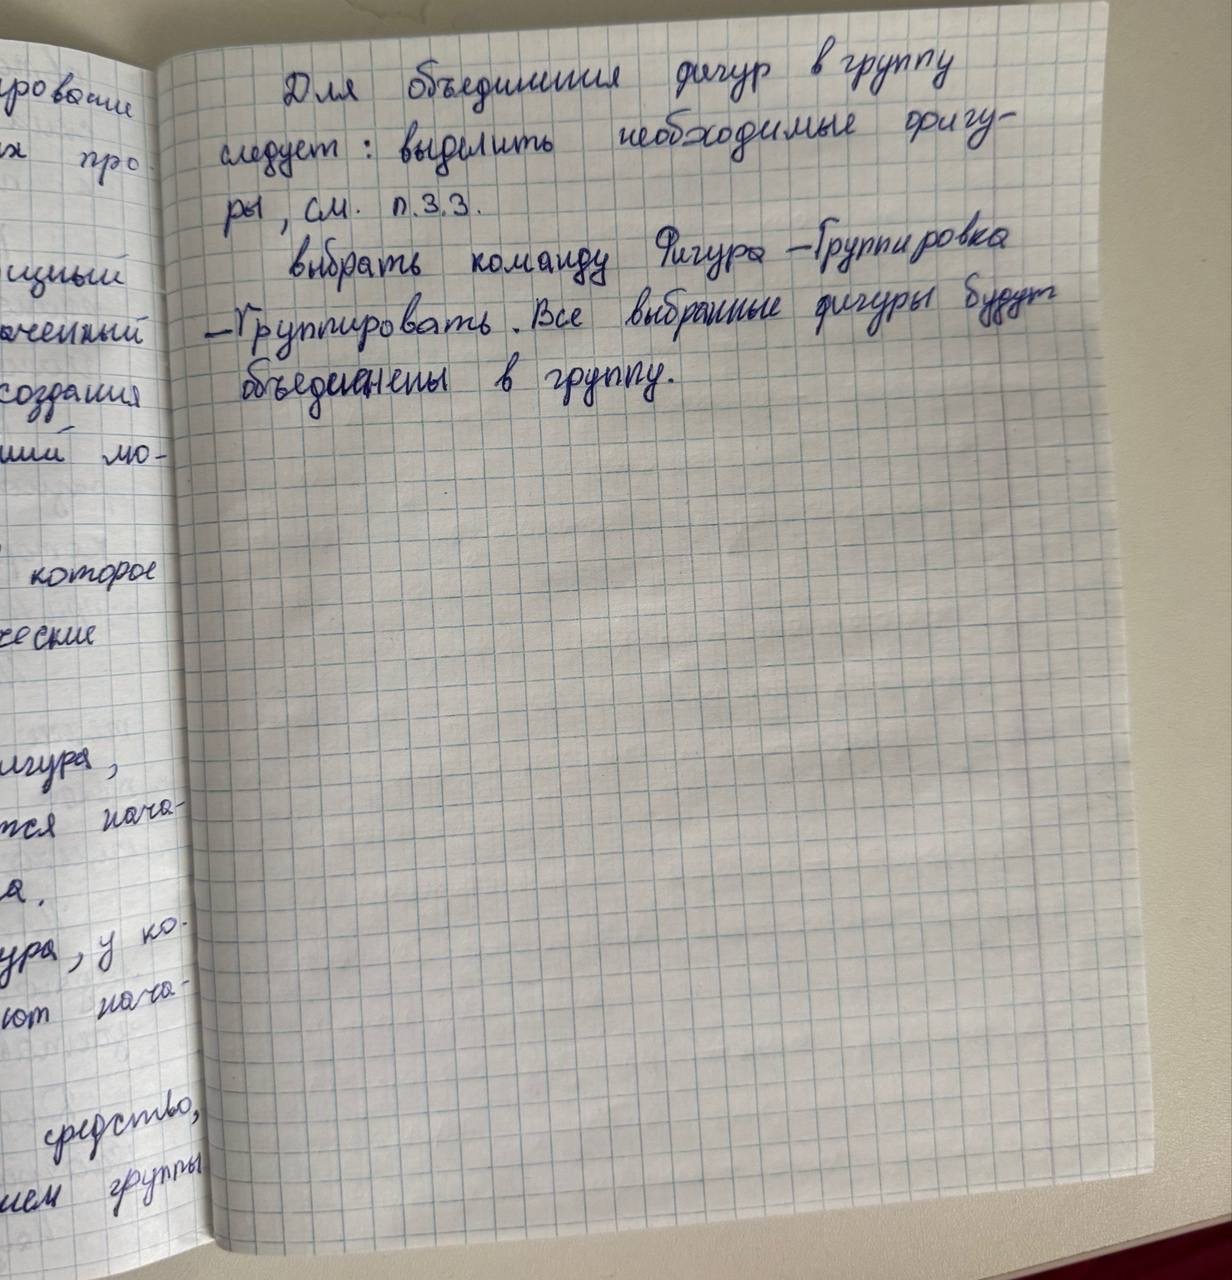 ирование
х про
ищный
аченный
создания
ший мо-
которое
ческие
игура,
тся нача-
а.
ура, у ко-
ют нача-
средство,
ием группы
Для объединения фигур в группу
следует: выделить необходимые фигу-
ры, см. п.3.3.
выбрать команду Фигура -Группировка
-Группировать. Все выбранные фигуры будут
объединены в группу.